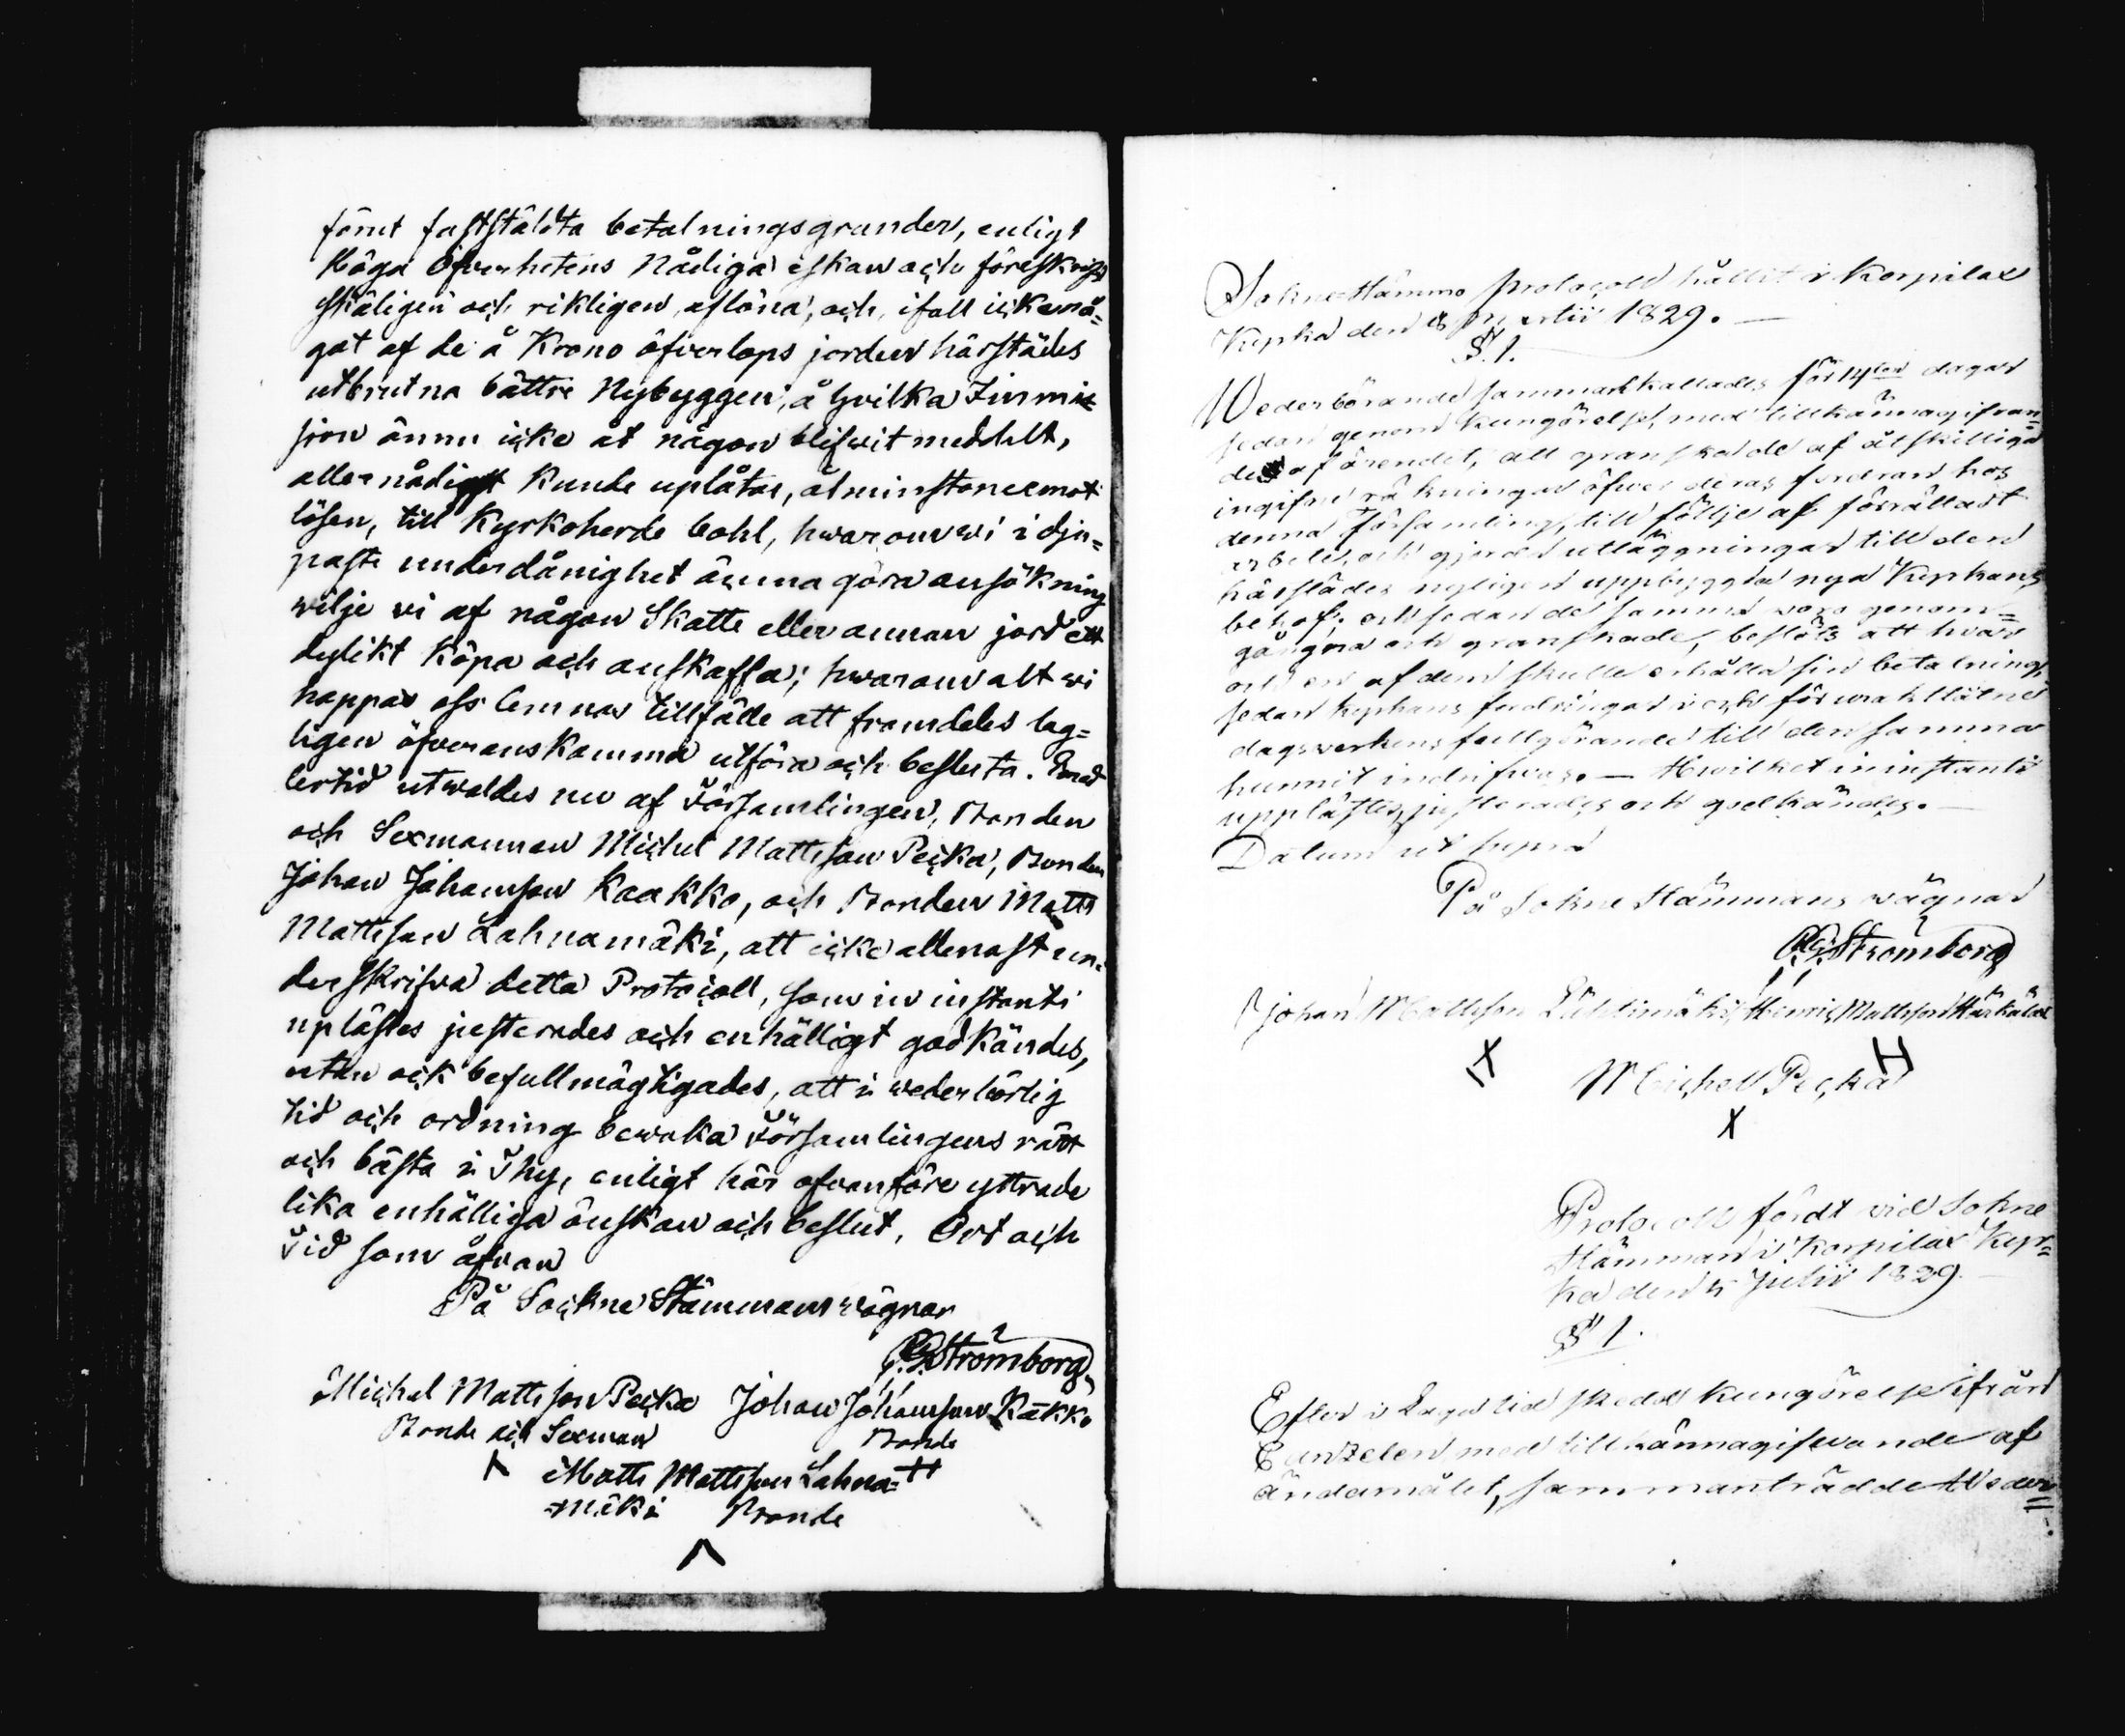 förut fastställta betalningsgrunder, enligt
Höga Öfverhetens Nådiga önskan och föreskrift
skäligen och rikligen aflöna, och, ifall icke nå=
got af de å Krono öfverlops jorden härstädes
utbrutna bättre Nybyggen, å hvilka Inmis
sion ännu icke åt någon blifvit meddelt,
allernådigst kunde uplåtas, åtminstone emot
lösen, till Kyrkoherde bohl, hwarom wi i dju=
paste underdånighet ämna göra ansökning
wilje vi af någon Skatte eller annan jord ett
dylikt köpa och anskaffa; hwarom alt wi
hoppas oss lemnas tillfälle att framdeles lag=
ligen öfverenskomma utföra och besluta. Emed
lertid utwaldes nu af Församlingen, Bonden
och Sexmannen Michel Mattsson Pecka, Bonden
Johan Johansson Kaakko, och Bonden Matts
Mattsson Lahnamäki, att icke allenast un=
derskrifva detta Protocoll, som in instanti
uplästes justerades och enhälligt godkändes,
utan ock befullmägtigades, att i wederbörlig
tid och ordning bewaka Församlingens rätt
och bästa i Thy, enligt här ofvanföre yttrade
lika enhälliga önskan och beslut. Ort och
Tid som åfvan
På Sockne Stämmans wägnar
Strömborg
Michel Mattsson Pecka Johan Johansson Kakko
Bonde och Sexman Bonde
Matts Mattsson Lahna=
mäki Bonde
Sokne Stämmo protocoll hållit i Korpilax
Kyrka den 8 Martii 1829. —
§. 1.
Wederbörande sammankallades för 14 dagar
sedan genom kungörelse, med tillkännagifvan=
de af ärendet, att granskade af åtskilliga
ingifne räkningar öfwer deras fordran hos
denna Församling, till följe af förrättadt
arbete, och gjorda utläggningar till den
härstädes nyligen uppbyggda nya Kyrkans
behof; och sedan de samma woro genom=
gångna och granskade, beslöts att hvar
och en af dem skulle erhålla sin betalning,
sedan kyrkans fordringar och för
dagsverkens fullgörande till den samma
hunnit indrifwas. — Hwilket in instanti
upplästes, justerades och godkändes. —
Datum ut supra
På Sokne Stämmans wägnar
Strömborg
Johan Mattsson Lühtimäki, Henric Mattsson Härkälax
Michell Pecka
Protocoll fördt vid Sokne
Stämman i Korpilax Kyr=
ka den 5 Julii 1829.
§ 1.
Efter i Laga tid skedd kungörelse ifrån
Canzelen med tillkännagifwande af
ändamålet, sammanträdde Weder=